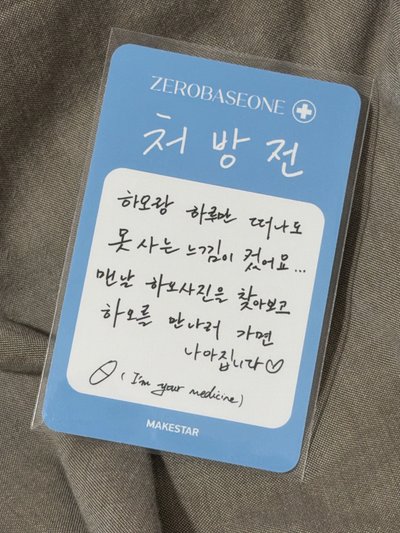 ZEROBASEONE
처방전
하오랑 하루만 떠나도
못 사는 느낌이 컸어요...
맨날 하오사진을 찾아보고
하오를 만나러 가면
나아집니다♡
(I'm your medicine)
MAKESTAR